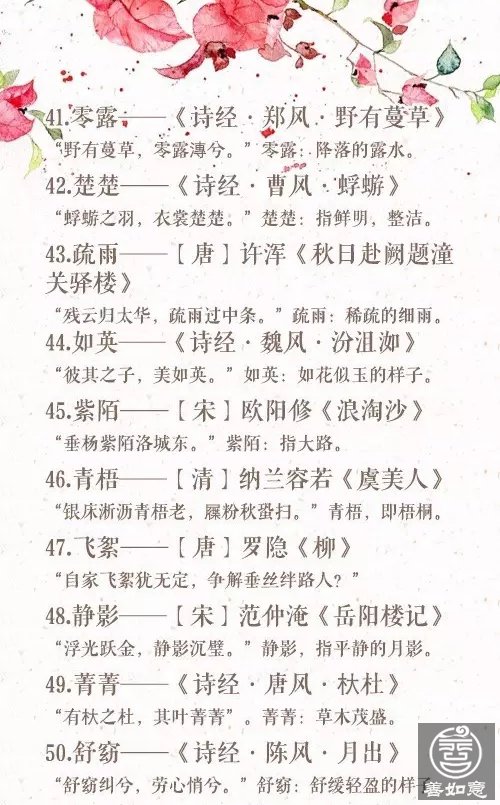 41.零露——《诗经·郑风·野有蔓草》
“野有蔓草，零露漙兮。”零露：降落的露水。
42.楚楚——《诗经·曹风·蜉蝣》
“蜉蝣之羽，衣裳楚楚。”楚楚：指鲜明，整洁。
43.疏雨——[唐]许浑《秋日赴阙题潼
关驿楼》
“残云归太华，疏雨过中条。”疏雨：稀疏的细雨。
44.如英——《诗经·魏风·汾沮洳》
“彼其之子，美如英。”如英：如花似玉的样子。
45.紫陌——[宋]欧阳修《浪淘沙》
“垂杨紫陌洛城东。”紫陌：指大路。
46.青梧——[清]纳兰容若《虞美人》
“银床淅沥青梧老，屧粉秋蛩扫。”青梧，即梧桐。
47.飞絮——[唐]罗隐《柳》
“自家飞絮犹无定，争解垂丝绊路人？”
48.静影——[宋]范仲淹《岳阳楼记》
“浮光跃金，静影沉璧。”静影，指平静的月影。
49.菁菁——《诗经·唐风·杕杜》
“有杕之杜，其叶菁菁”。菁菁：草木茂盛。
50.舒窈——《诗经·陈风·月出》
“舒窈纠兮，劳心悄兮。”舒窈：舒缓轻盈的样子
善如意